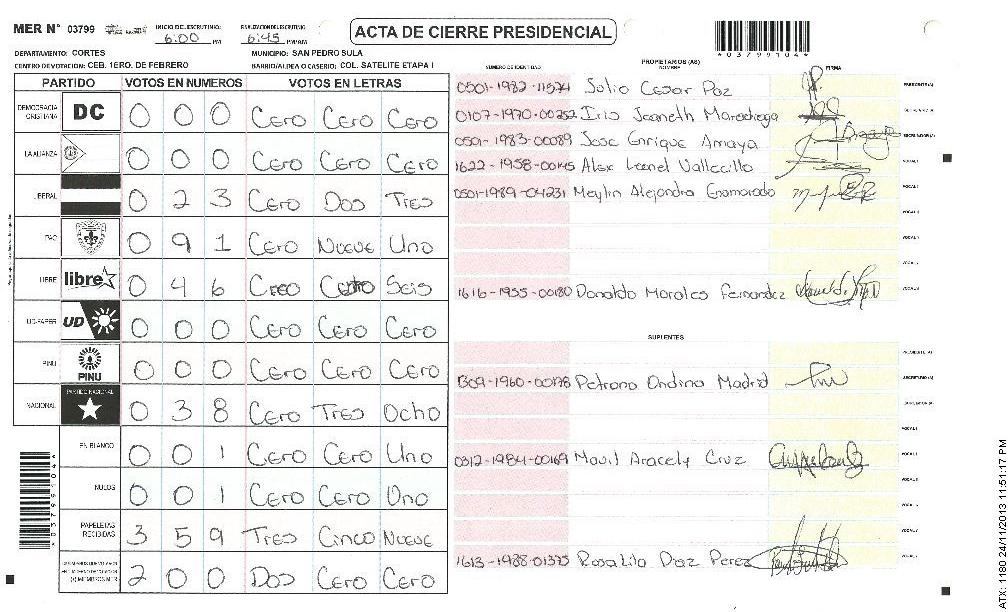 MER N° 03799 INICIO DE ESCRUTINIO: 6:00 PM FINALIZACION DE ESCRUTINIO: 6:45 PM/AM ACTA DE CIERRE PRESIDENCIAL *03799104*
DEPARTAMENTO: CORTES MUNICIPIO: SAN PEDRO SULA
CENTRO DE VOTACIÓN: CEB. 1ERO. DE FEBRERO BARRIO/ALDEA O CASERIO: COL. SATELITE ETAPA I
PARTIDO VOTOS EN NUMEROS VOTOS EN LETRAS
DEMOCRACIA CRISTIANA DC 0 0 0 Cero Cero Cero
LA ALIANZA 0 0 0 Cero Cero Cero
LIBERAL 0 2 3 Cero Dos Tres
PAC 0 9 1 Cero Nueve Uno
LIBRE libre 0 4 6 Seis
UD-FAPER UD 0 0 0 Cero Cero Cero
PINU PINU 0 0 0 Cero Cero Cero
NACIONAL PARTIDO NACIONAL 0 3 8 Cero Tres Ocho
EN BLANCO 0 0 1 Cero Cero Uno
NULOS 0 0 1 Cero Cero Uno
PAPELETAS RECIBIDAS 3 5 9 Tres Cinco Nueve
2 0 0 Dos Cero Cero
*03799104*
NUMERO DE IDENTIDAD PROPIETARIOS (AS) NOMBRE FIRMA
0501-1982-11574 Julio Cesar Paz PRESIDENTE (A)
0107-1970-00252 Iris Jeaneth Maradiaga SECRETARIO (A)
0501-1983-00089 Jose Enrique Amaya ESCRUTADOR (A)
1622-1958-00145 Alex Leonel Vallecillo VOCAL I
0501-1989-04231 Meylin Alejandra Enamorado
1616-1955-00180 Donaldo Morales Fernandez
SUPLENTES
PRESIDENTE (A)
1309-1960-00178 Petrona Ondina Madrid SECRETARIO (A)
ESCRUTADOR (A)
0312-1984-00169 Aracely Cruz VOCAL I
1613-1988-01375 Rosalila Diaz Perez
ATX: 1180 24/11/2013 11:51:17 PM